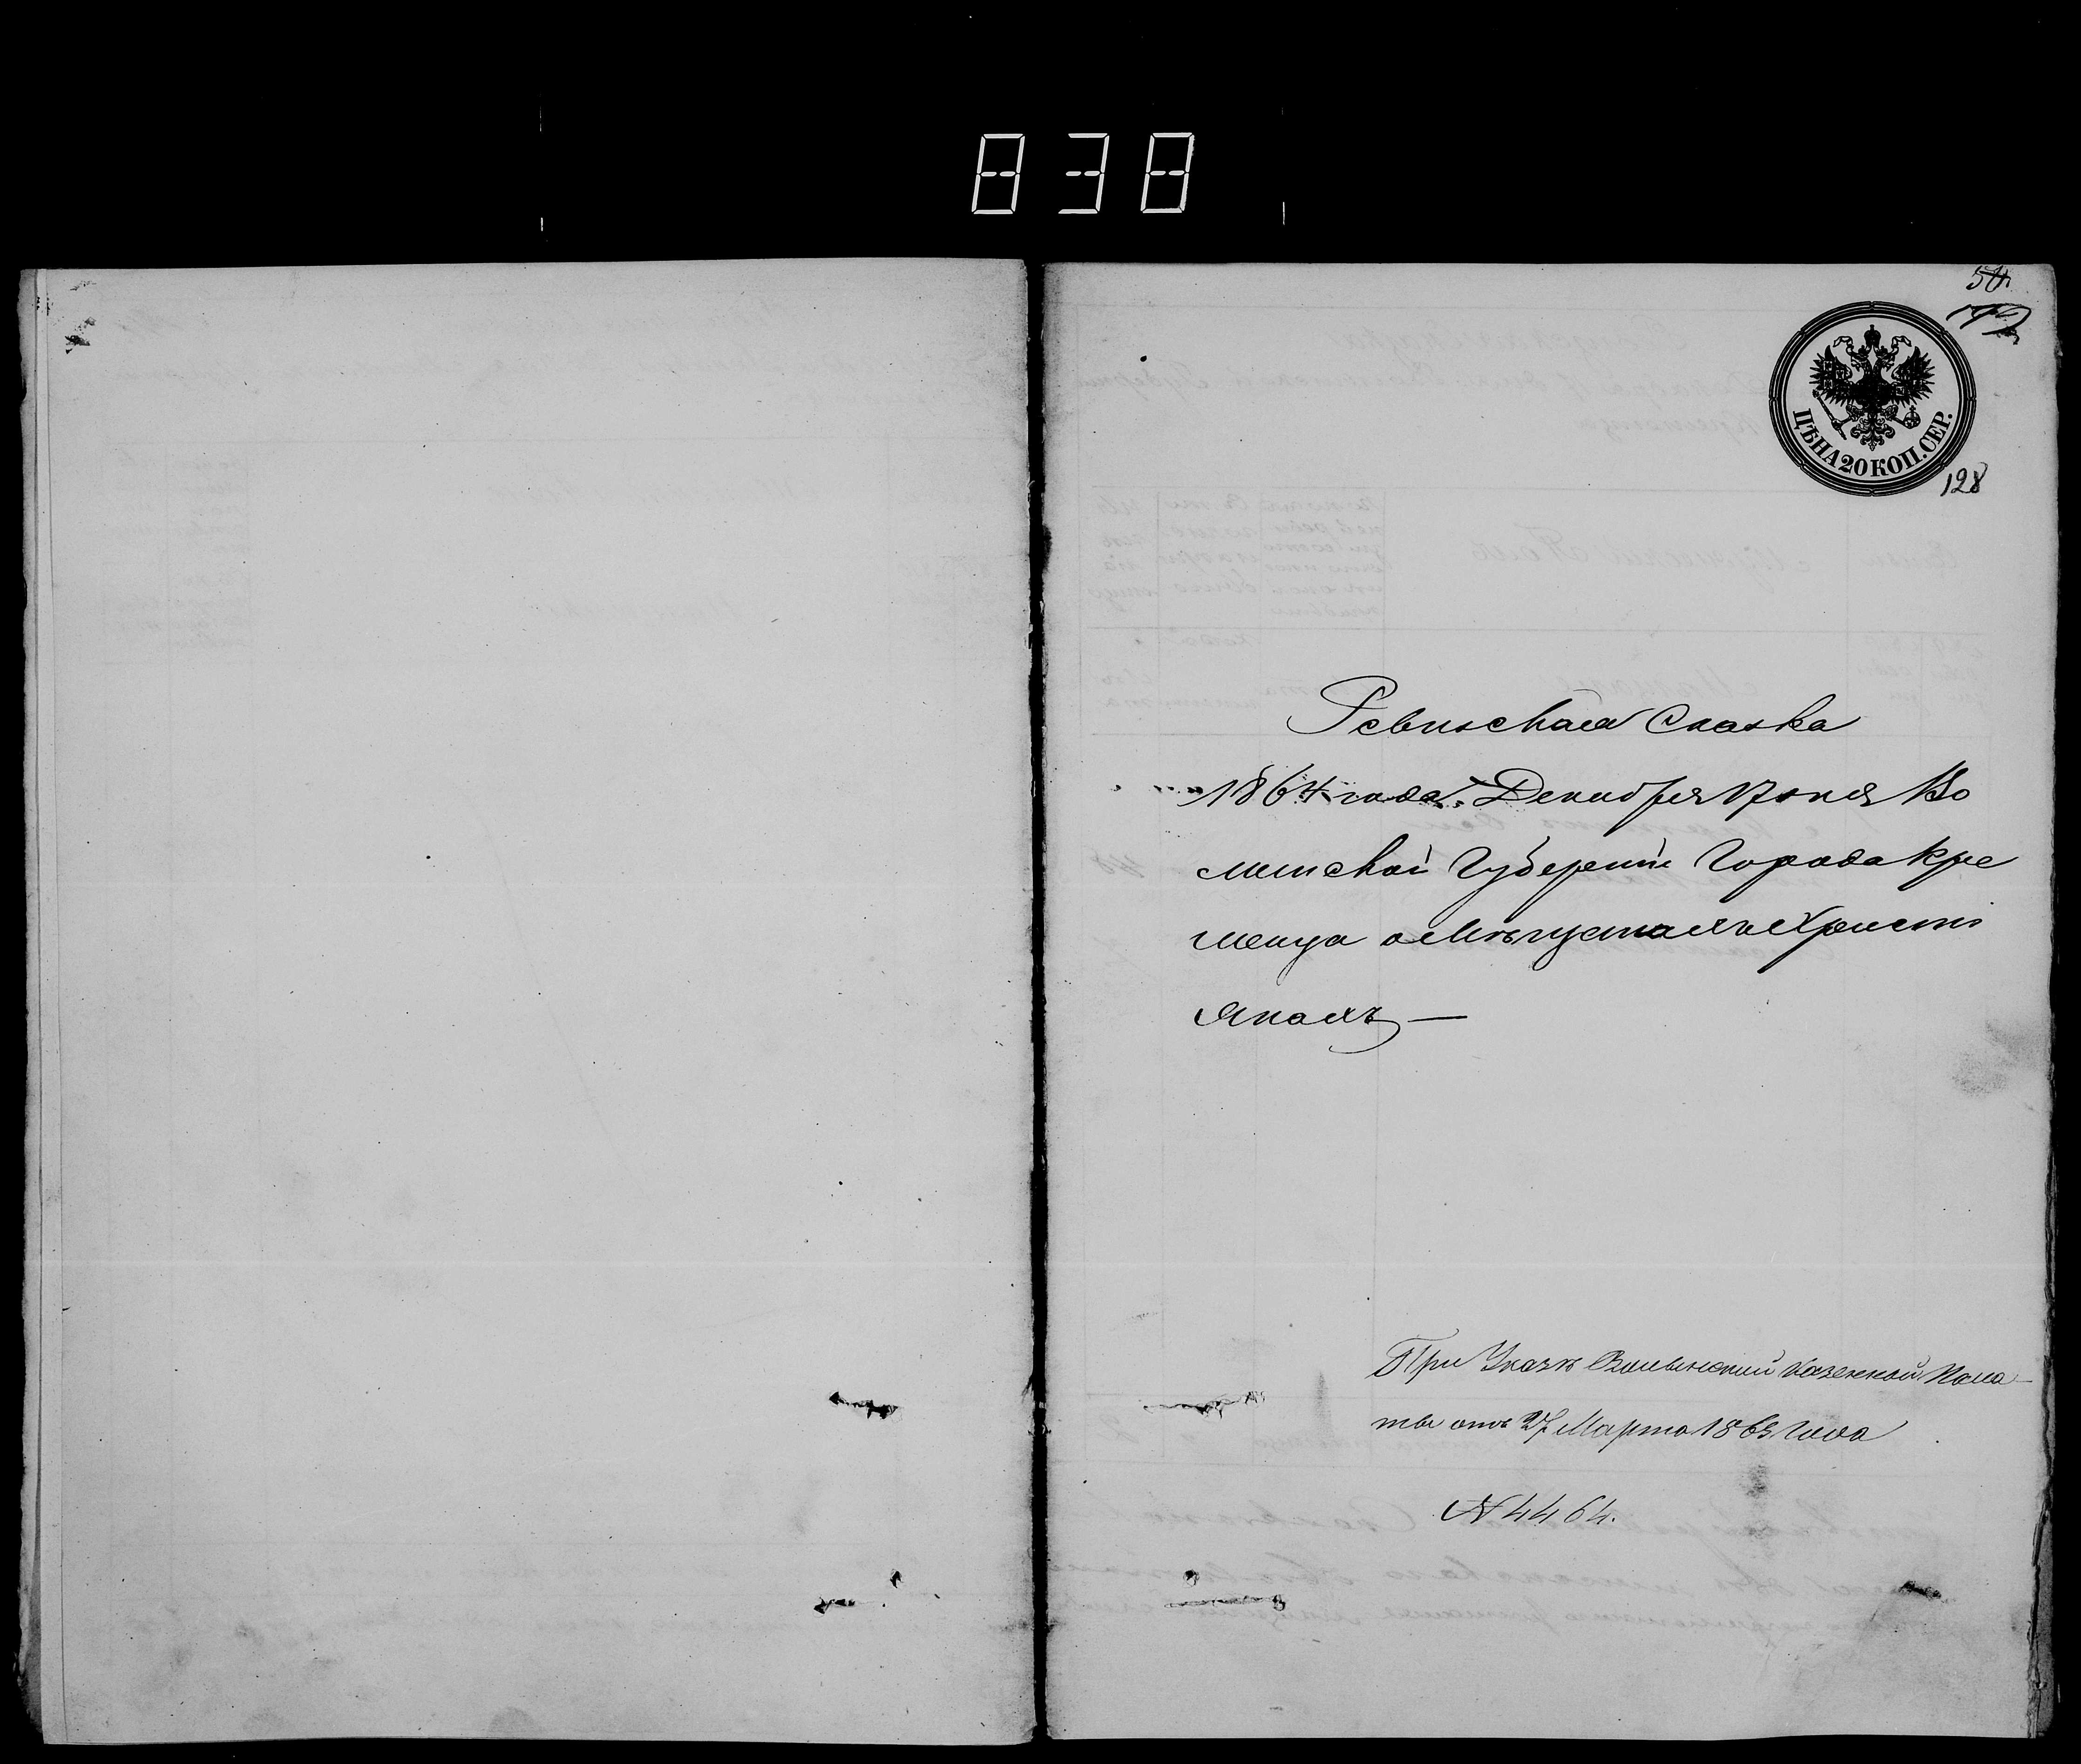 838
50
192
ЦѢНА 20 КОП. СЕР.
128
Ревизская Сказка
1864 года Декабря 17 дня Во
лынской Губерніи Города Кре
менца о Мѣщанахъ Христі
янахъ —
При Указѣ Волынской Казенной Пала-
ты отъ 27 Марта 1865 года
№ 4464.